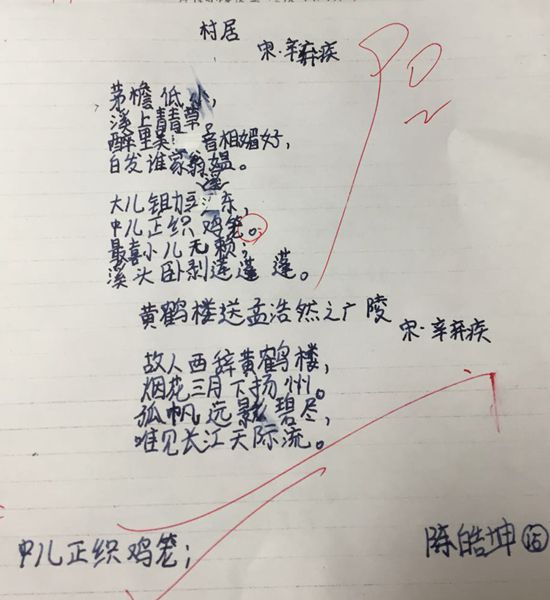 村居
宋·辛弃疾
茅檐低小,
溪上青青草。
醉里吴 音相媚好,
白发谁家翁媪。
大儿锄豆溪东,
中儿正织鸡笼。
最喜小儿无赖;
溪头卧剥莲蓬。
黄鹤楼送孟浩然之广陵
宋·辛弃疾
故人西辞黄鹤楼,
烟花三月下扬州。
孤帆远影碧尽,
唯见长江天际流。
中儿正织鸡笼;
陈皓坤 15